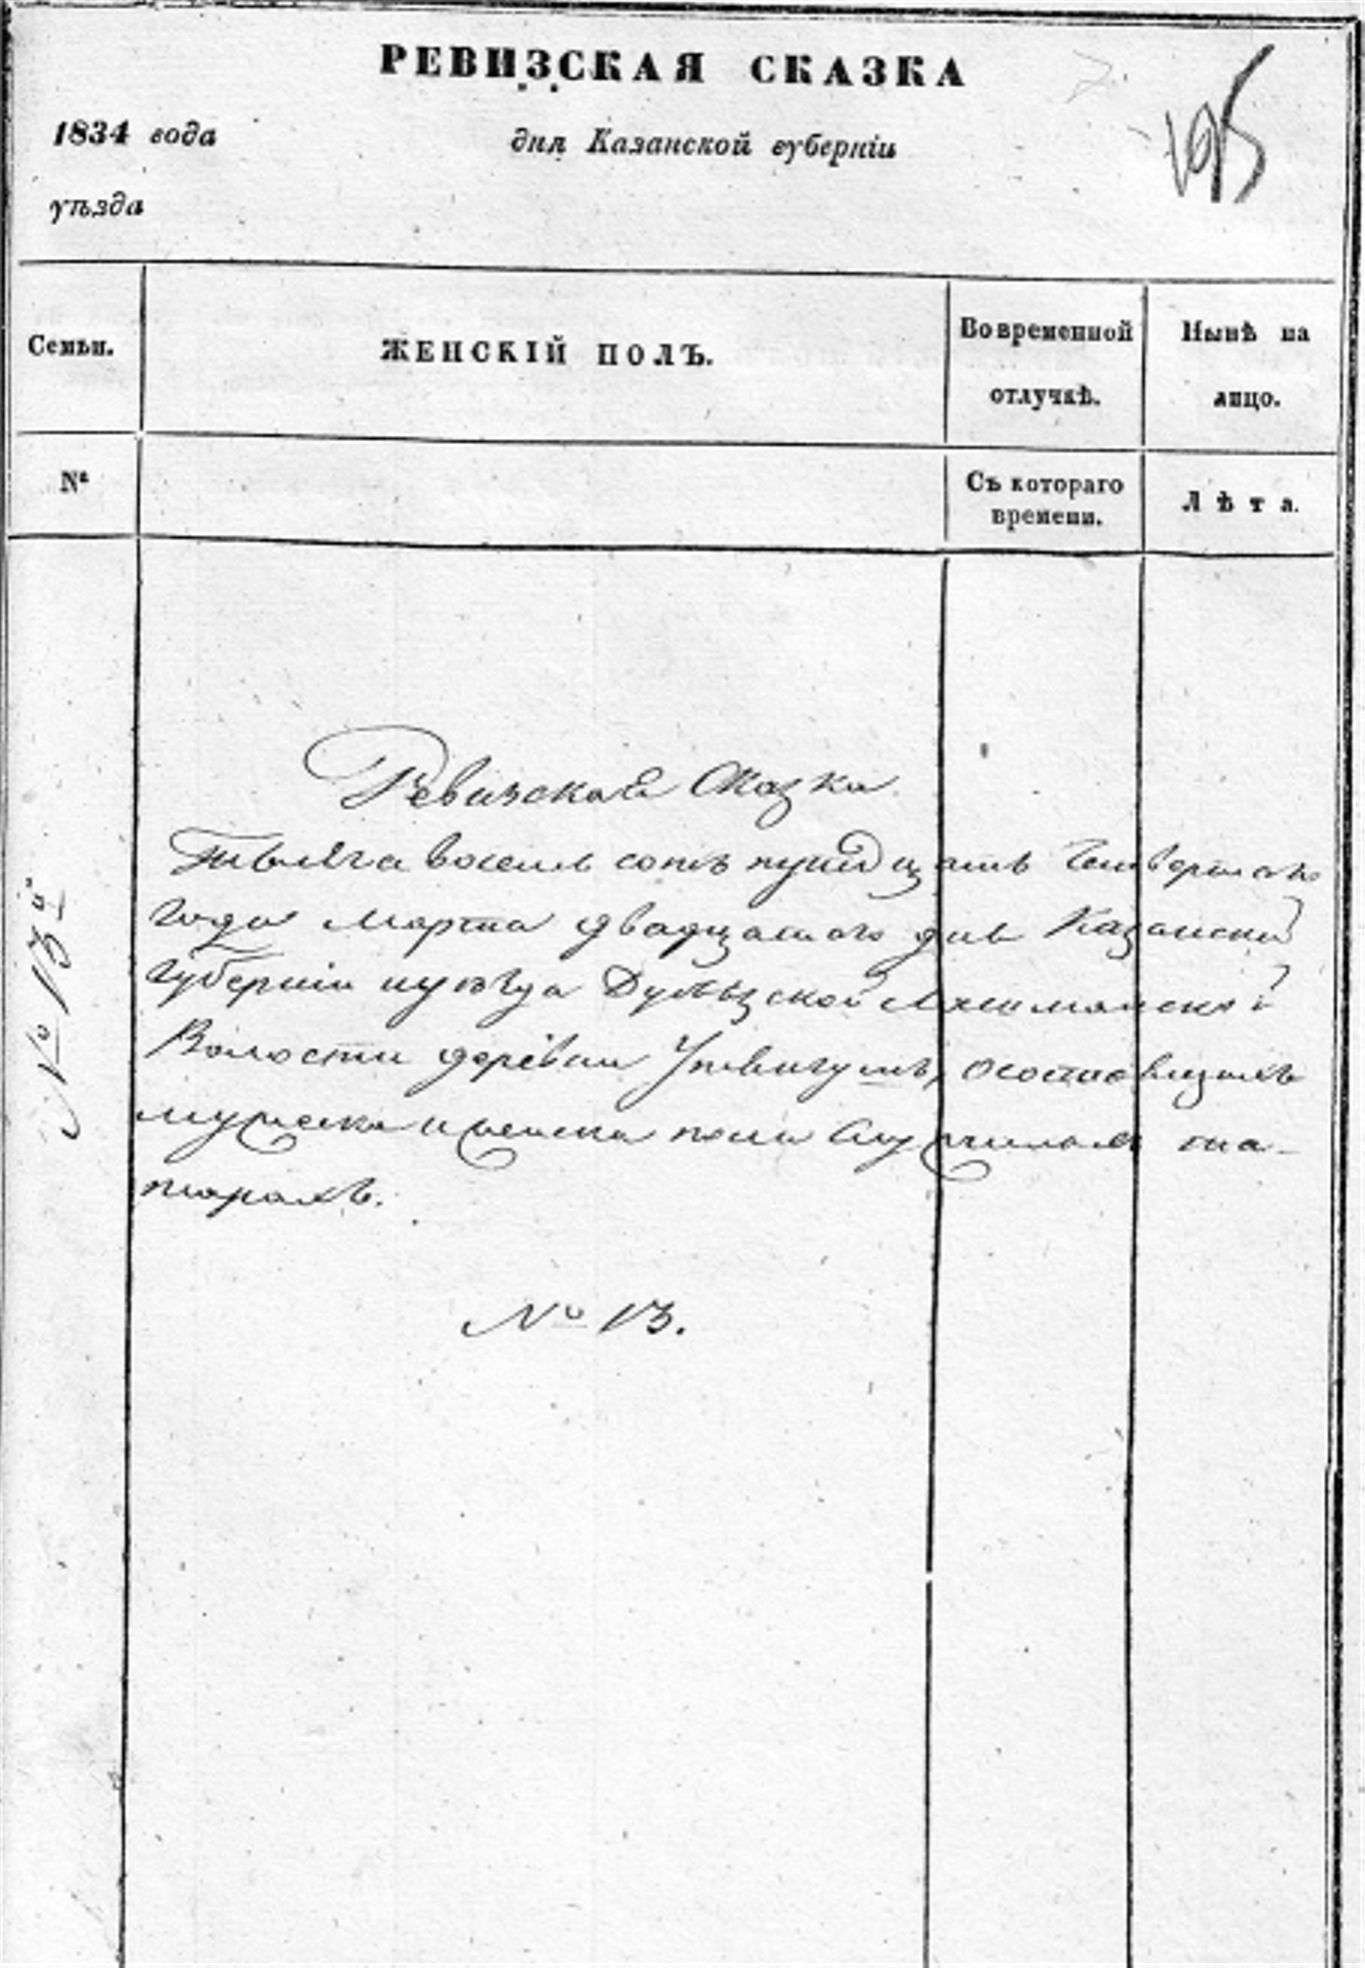 РЕВИЗСКАЯ СКАЗКА
195
1834 года дня Казанской губерніи
уѣзда
Семьи. ЖЕНСКІЙ ПОЛЪ. Во временной отлучкѣ. Нынѣ на лицо.
№ Съ котораго времени. Лѣта.
Ревизская Сказка
Тысяча восемь сотъ тридцать Четвертаго
года марта двадцатаго дня Казанской
губерніи и уѣзда
Волости деревни о состоящихъ
мужеска и женска пола Служилыхъ та-
тарахъ.
№ 13.
№ 13й